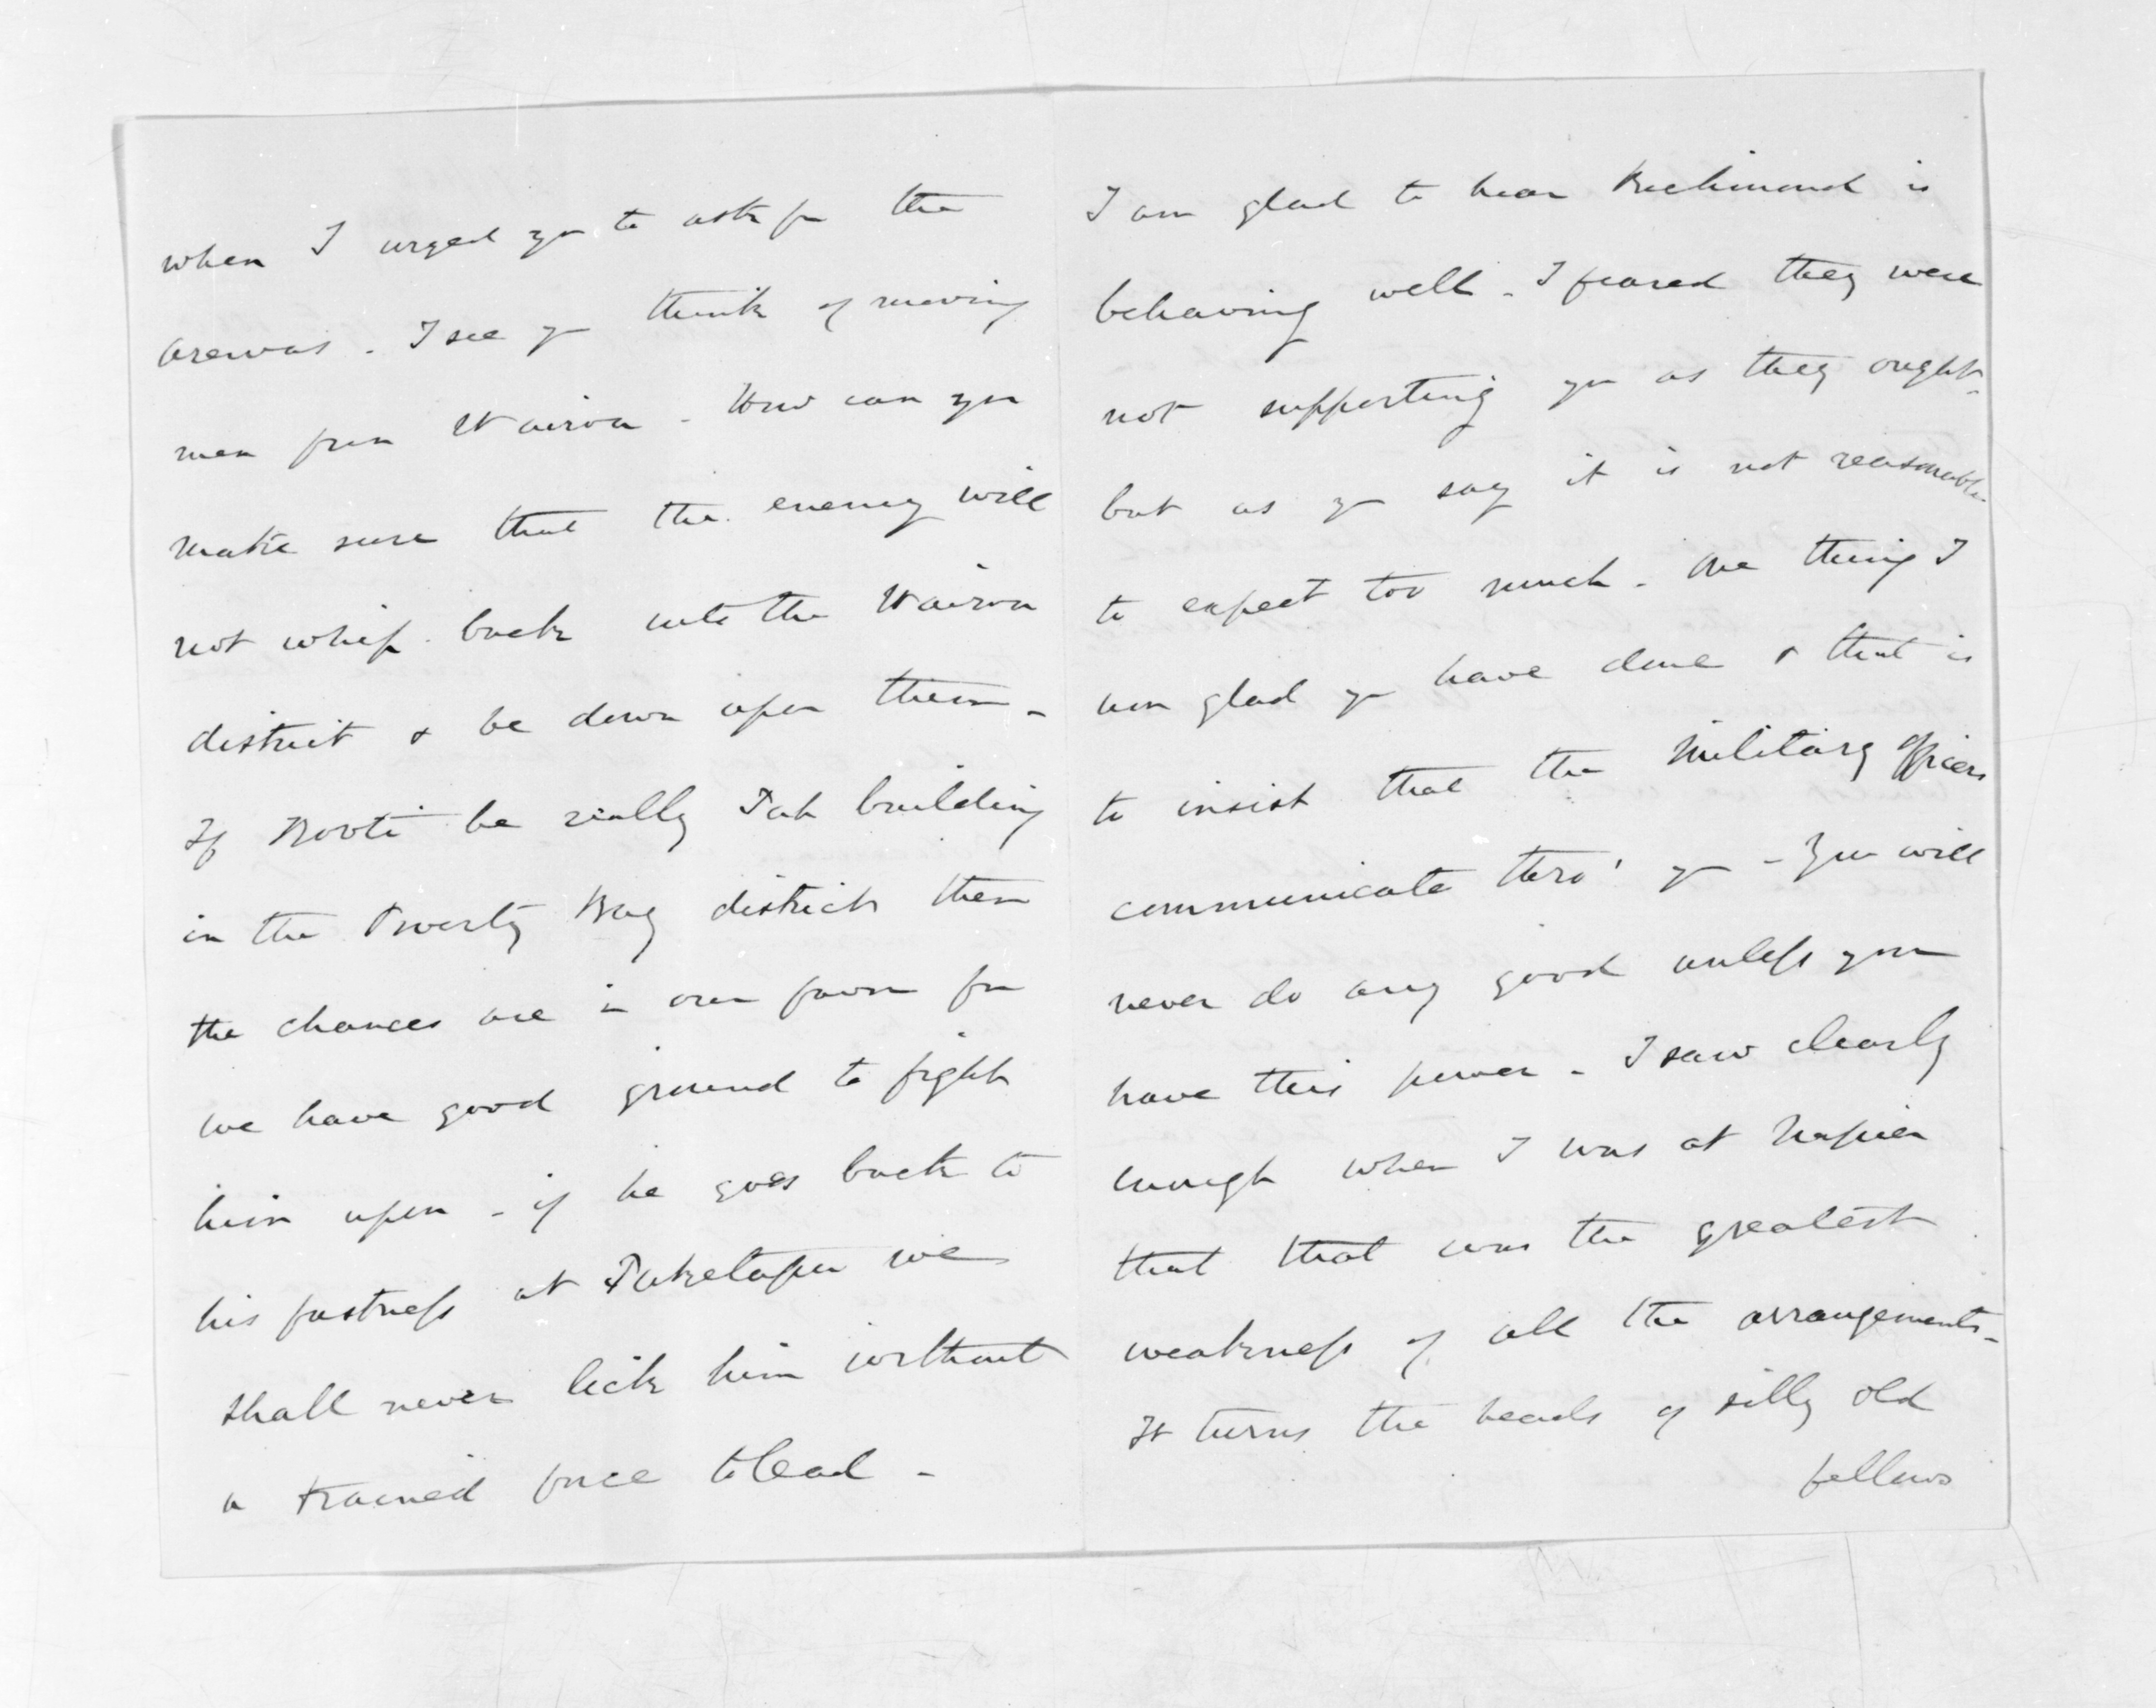 when I urged you to ask for the
Arawas. I see you think of moving
men from Wairoa - How can you
make sure that the enemy will
not whip back into the Wairoa
district & be down upon them -
If Kooti be really Pah building
in the Poverty Bay district then
the chances are in our favor for
we have good ground to fight
him upon - if he goes back to
his fastness at Puketapu we
shall never lick him without
a trained force to lead -
I am glad to hear Richmond is
behaving well - I feared they were
not supporting you as they ought -
but as you say it is not reasonable
to expect too much - One thing I
am glad you have done & that is
to insist that the Military Officers
communicate thro' you - You will
never do any good unless you
have this power - I saw clearly
enough when I was at Napier
that that was the greatest
weakness of all the arrangements -
It turns the heads of silly old
fellows